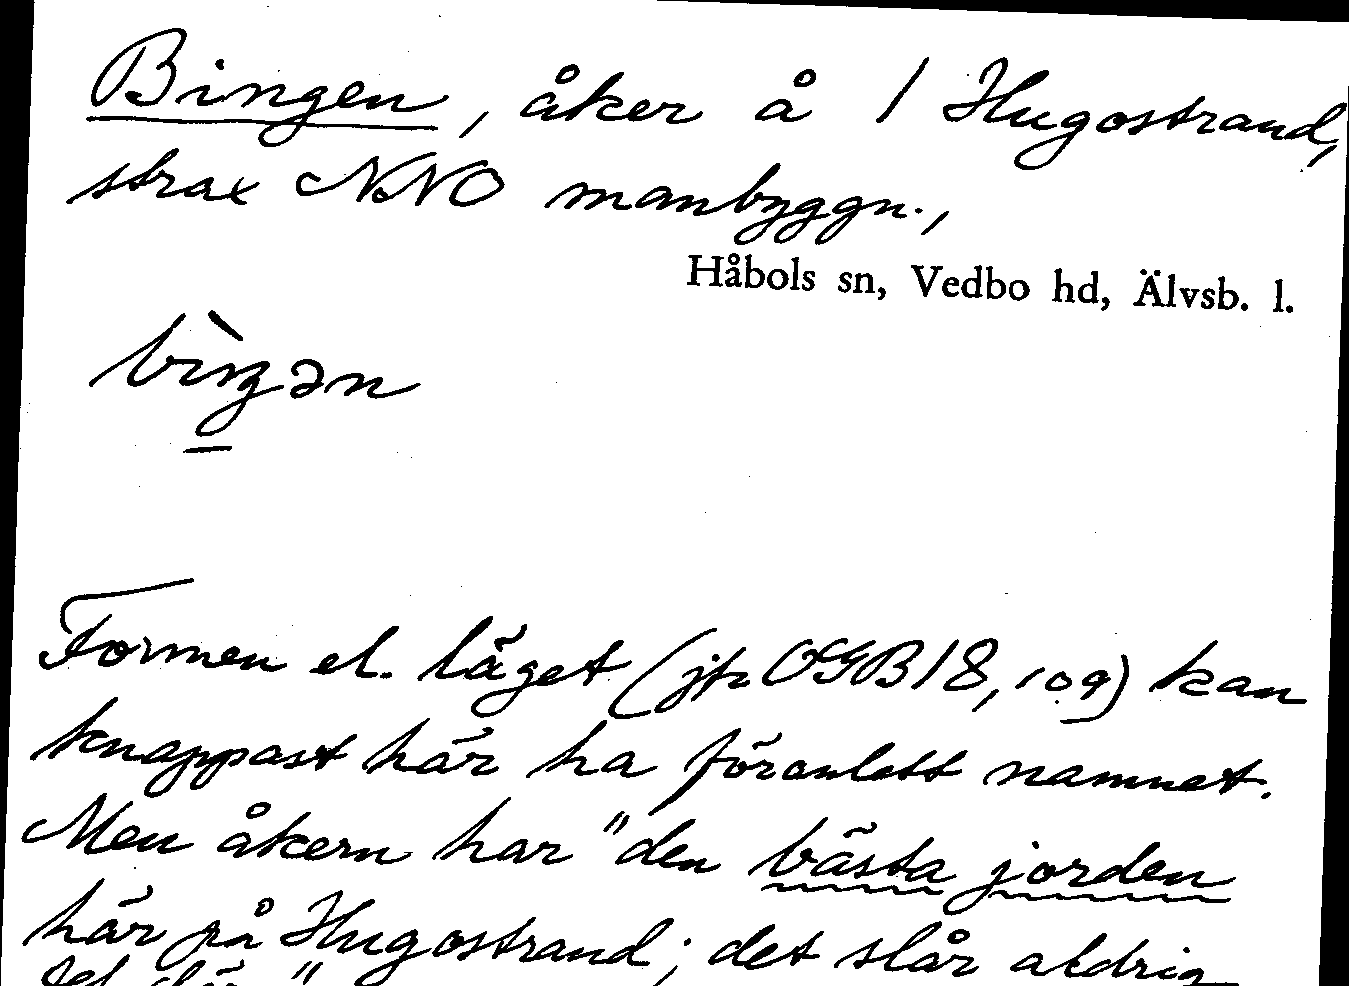 Bingen, åker å 1 Hugostrand,
strax NNO manbyggn.,
Håbols sn, Vedbo hd, Älvsb. l.
bìŋən
Formen el. läget (jfr OGB 18, 109) kan
knappast här ha föranlett namnet.
Men åkern har "den bästa jorden
här på Hugostrand; det slår aldrig